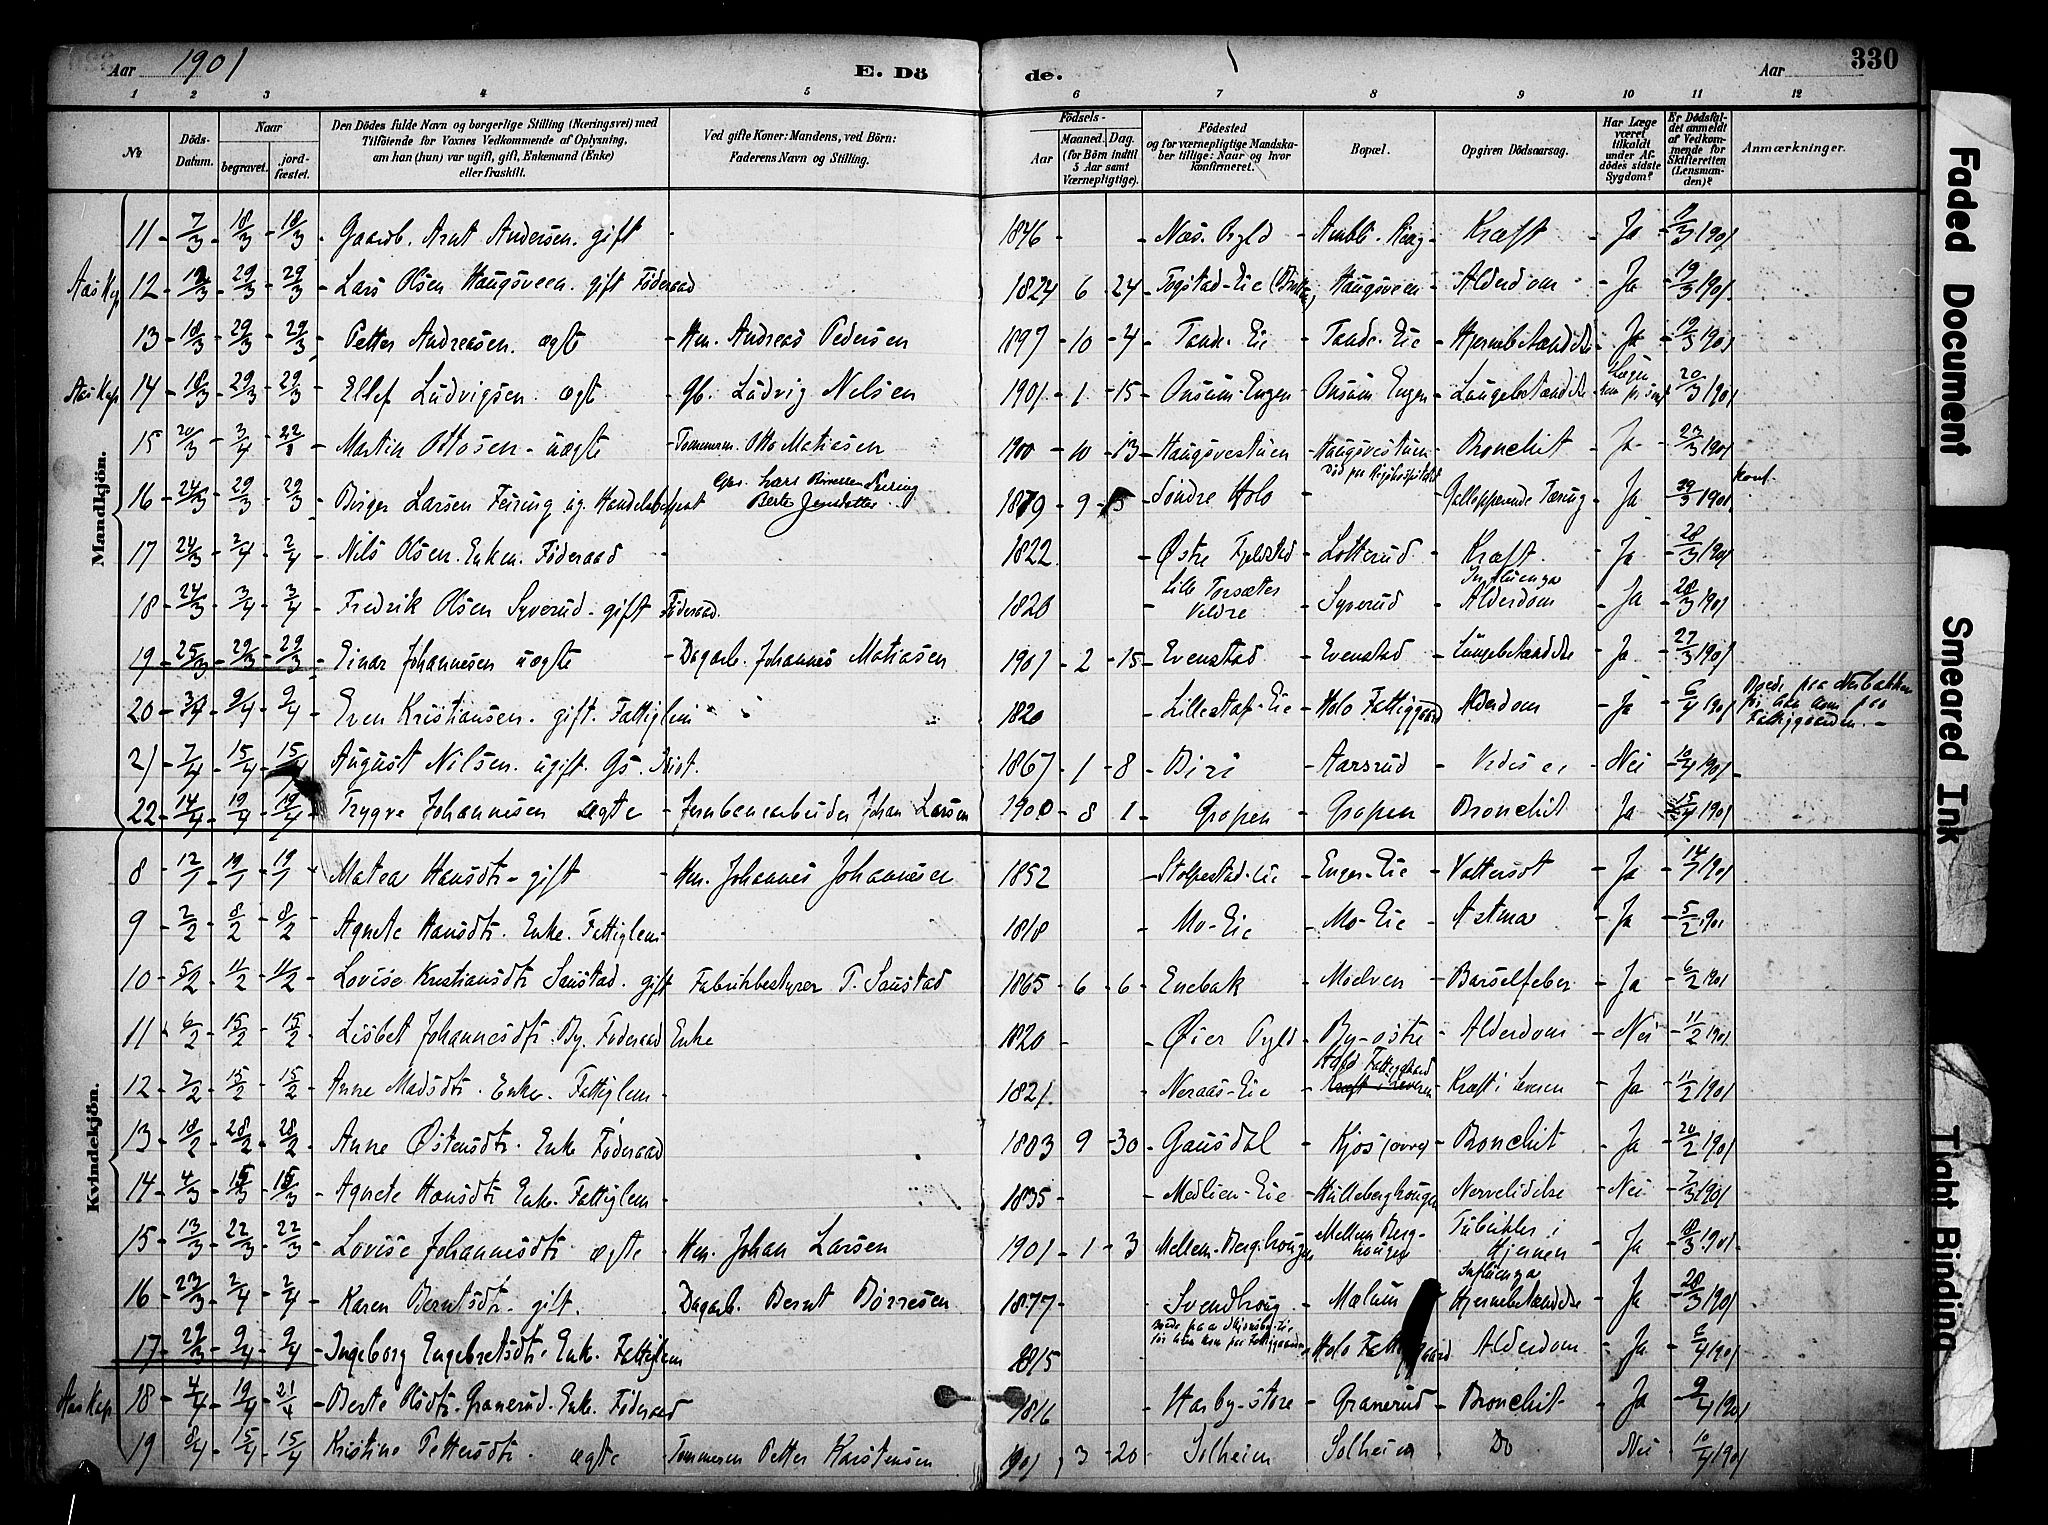 Aar 1901 E. Döde. Aar 330
1 2 3 4 5 6 7 8 9 10 11 12
№ Döds-Datum. Naar begravet. jordfæstet. Den Dödes fulde Navn og borgerlige Stilling (Næringsvei) med Tilföiende for Voxnes Vedkommende af Oplysning, om han (hun) var ugift, gift, Enkemand (Enke) eller fraskilt. Ved gifte Koner: Mandens, ved Börn: Faderens Navn og Stilling. Födsels- Aar Maaned. Dag. (for Börn indtil 5 Aar samt Værnepligtige). Födested og for værnepligtige Mandskaber tillige: Naar og hvor konfirmeret. Bopæl. Opgiven Dödsaarsag. Har Læge været tilkaldt under Afdödes sidste Sygdom? Er Dödsfaldet anmeldt af Vedkommende for Skifteretten (Lensmanden)? Anmærkninger.
Mandkjön.
11 7/3 18/3 18/3 Gaardb. Arnt Andersen. gift 1846 Næs. Kræft Ja 9/3 1901
Aas Kap 12 29/3 29/3 Lars Olsen Haugsveen. gift Föderaad 1824 6 24 Haugsveen Alderdom Ja 19/3 1901
13 18/3 29/3 29/3 Petter Andreassen. ægte Hm. Andreas Pedersen 1897 10 4 Tande-Eie Tande-Eie Hjernebetændelse Ja 19/3 1901
Aas Kap 14 18/3 29/3 29/3 Ellef Ludvigsen. ægte Gb. Ludvig Nilsen 1901 1 15 Onsum-Engen Onsum Engen Lungebetændelse 20/3 1901
15 20/3 3/4 Martin Ottosen uægte Tømmerm. Otto Matiasen 1900 10 13 Haugsvestuen Haugsvestuen Bronchit Ja 23/3 1901
16 24/3 29/3 29/3 Birger Larsen Feiring ug. Handelsbetjent Berte Jensdatter 1879 9 15 Söndre Holo Død paa Rigshospitalet Galopperende Tæring Ja 29/3 1901
17 24/3 2/4 2/4 Nils Olsen. Enkem. Föderaad 1822 Østre Fjeldstad Lotterud Kræft. Ja 28/3 1901
18 24/3 3/4 3/4 Fredrik Olsen Syverud. gift Föderaad. 1820 Lille Torsæter Veldre Syverud Influenza Alderdom Ja 28/3 1901
19 25/3 29/3 29/3 Einar Johannesen uægte Dagarb. Johannes Matiasen 1901 2 15 Evenstad Evenstad Lungebetændelse Ja 27/3 1901
20 9/4 9/4 Even Kristiansen. gift. Fattiglem 1820 Holo Fattiggaard Alderdom Ja 6/4 1901 Boede paa Nerbakken för han kom paa Fattiggaarden.
21 7/4 15/4 15/4 August Nilsen. ugift. Gs. 1867 1 8 Biri Aarsrud Nei 10/4 1901
22 14/4 19/4 19/4 Trygve Johannesen ægte Jernbanearbeider Johan Larsen 1900 8 1 Gropen Gropen Bronchit Ja 15/4 1901
Kvindekjön.
8 12/1 19/1 19/1 Matea Hansdtr. gift Hm. Johannes Johannesen 1852 Stolpestad-Eie Enger-Eie Vattersot Ja 14/1 1901
9 2/2 8/2 8/2 Agnete Hansdtr. Enke. Fattiglem 1818 Mo-Eie Mo-Eie Astma Ja 5/2 1901
10 5/2 11/2 11/2 Lovise Kristiansdtr. Saustad. gift Fabrikbestyrer T. Saustad 1865 6 6 Enebak Moelven Barselfeber Ja 6/2 1901
11 6/2 15/2 15/2 Lisbet Johannesdtr. By. Föderaad Enke 1820 Øier By-østre Alderdom Nei 11/2 1901
12 7/2 15/2 15/2 Anne Madsdtr. Enke. Fattiglem 1821 Neraas-Eie Holo Fattiggaard Kræft i Leveren Kræft i Leveren Ja 11/2 1901
13 18/2 28/2 28/2 Anne Østensdtr. Enke Föderaad 1803 9 30 Gausdal Kjos (øvre) Bronchit Ja 20/2 1901
14 4/3 15/3 15/3 Agnete Hansdtr. Enke. Fattiglem 1835 Medlien-Eie Hulleberghaugen Nervelidelse Nei 7/3 1901
15 13/3 22/3 22/3 Lovise Johannesdtr. ægte Hm. Johan Larsen 1901 1 3 Mellem-Berghaugen Mellem Berghaugen Tuberkler i Hjernen Ja 18/3 1901
16 23/3 2/4 2/4 Karen Berntsdtr. gift. Dagarb. Bernt Börresen 1877 Svendhaug Mælum Influenza Hjernebetændelse Ja 28/3 1901
17 29/3 9/4 9/4 Ingeborg Engebretsdtr. Enke. Fattiglem 1815 för hun kom paa Fattiggaarden Holo Fattiggaard Alderdom Ja 6/4 1901
Aas Kap 18 4/4 19/4 21/4 Berte Olsdtr. Granerud. Enke. Föderaad 1816 Harby-store Granerud Bronchit Ja 9/4 1901
19 8/4 15/4 15/4 Kristine Pettersdtr. ægte Tømmerm Petter Karstensen 1901 3 20 Solheim Solheim Do Nei 10/4 1901
Faded Document
Smeared Ink
Tight Binding